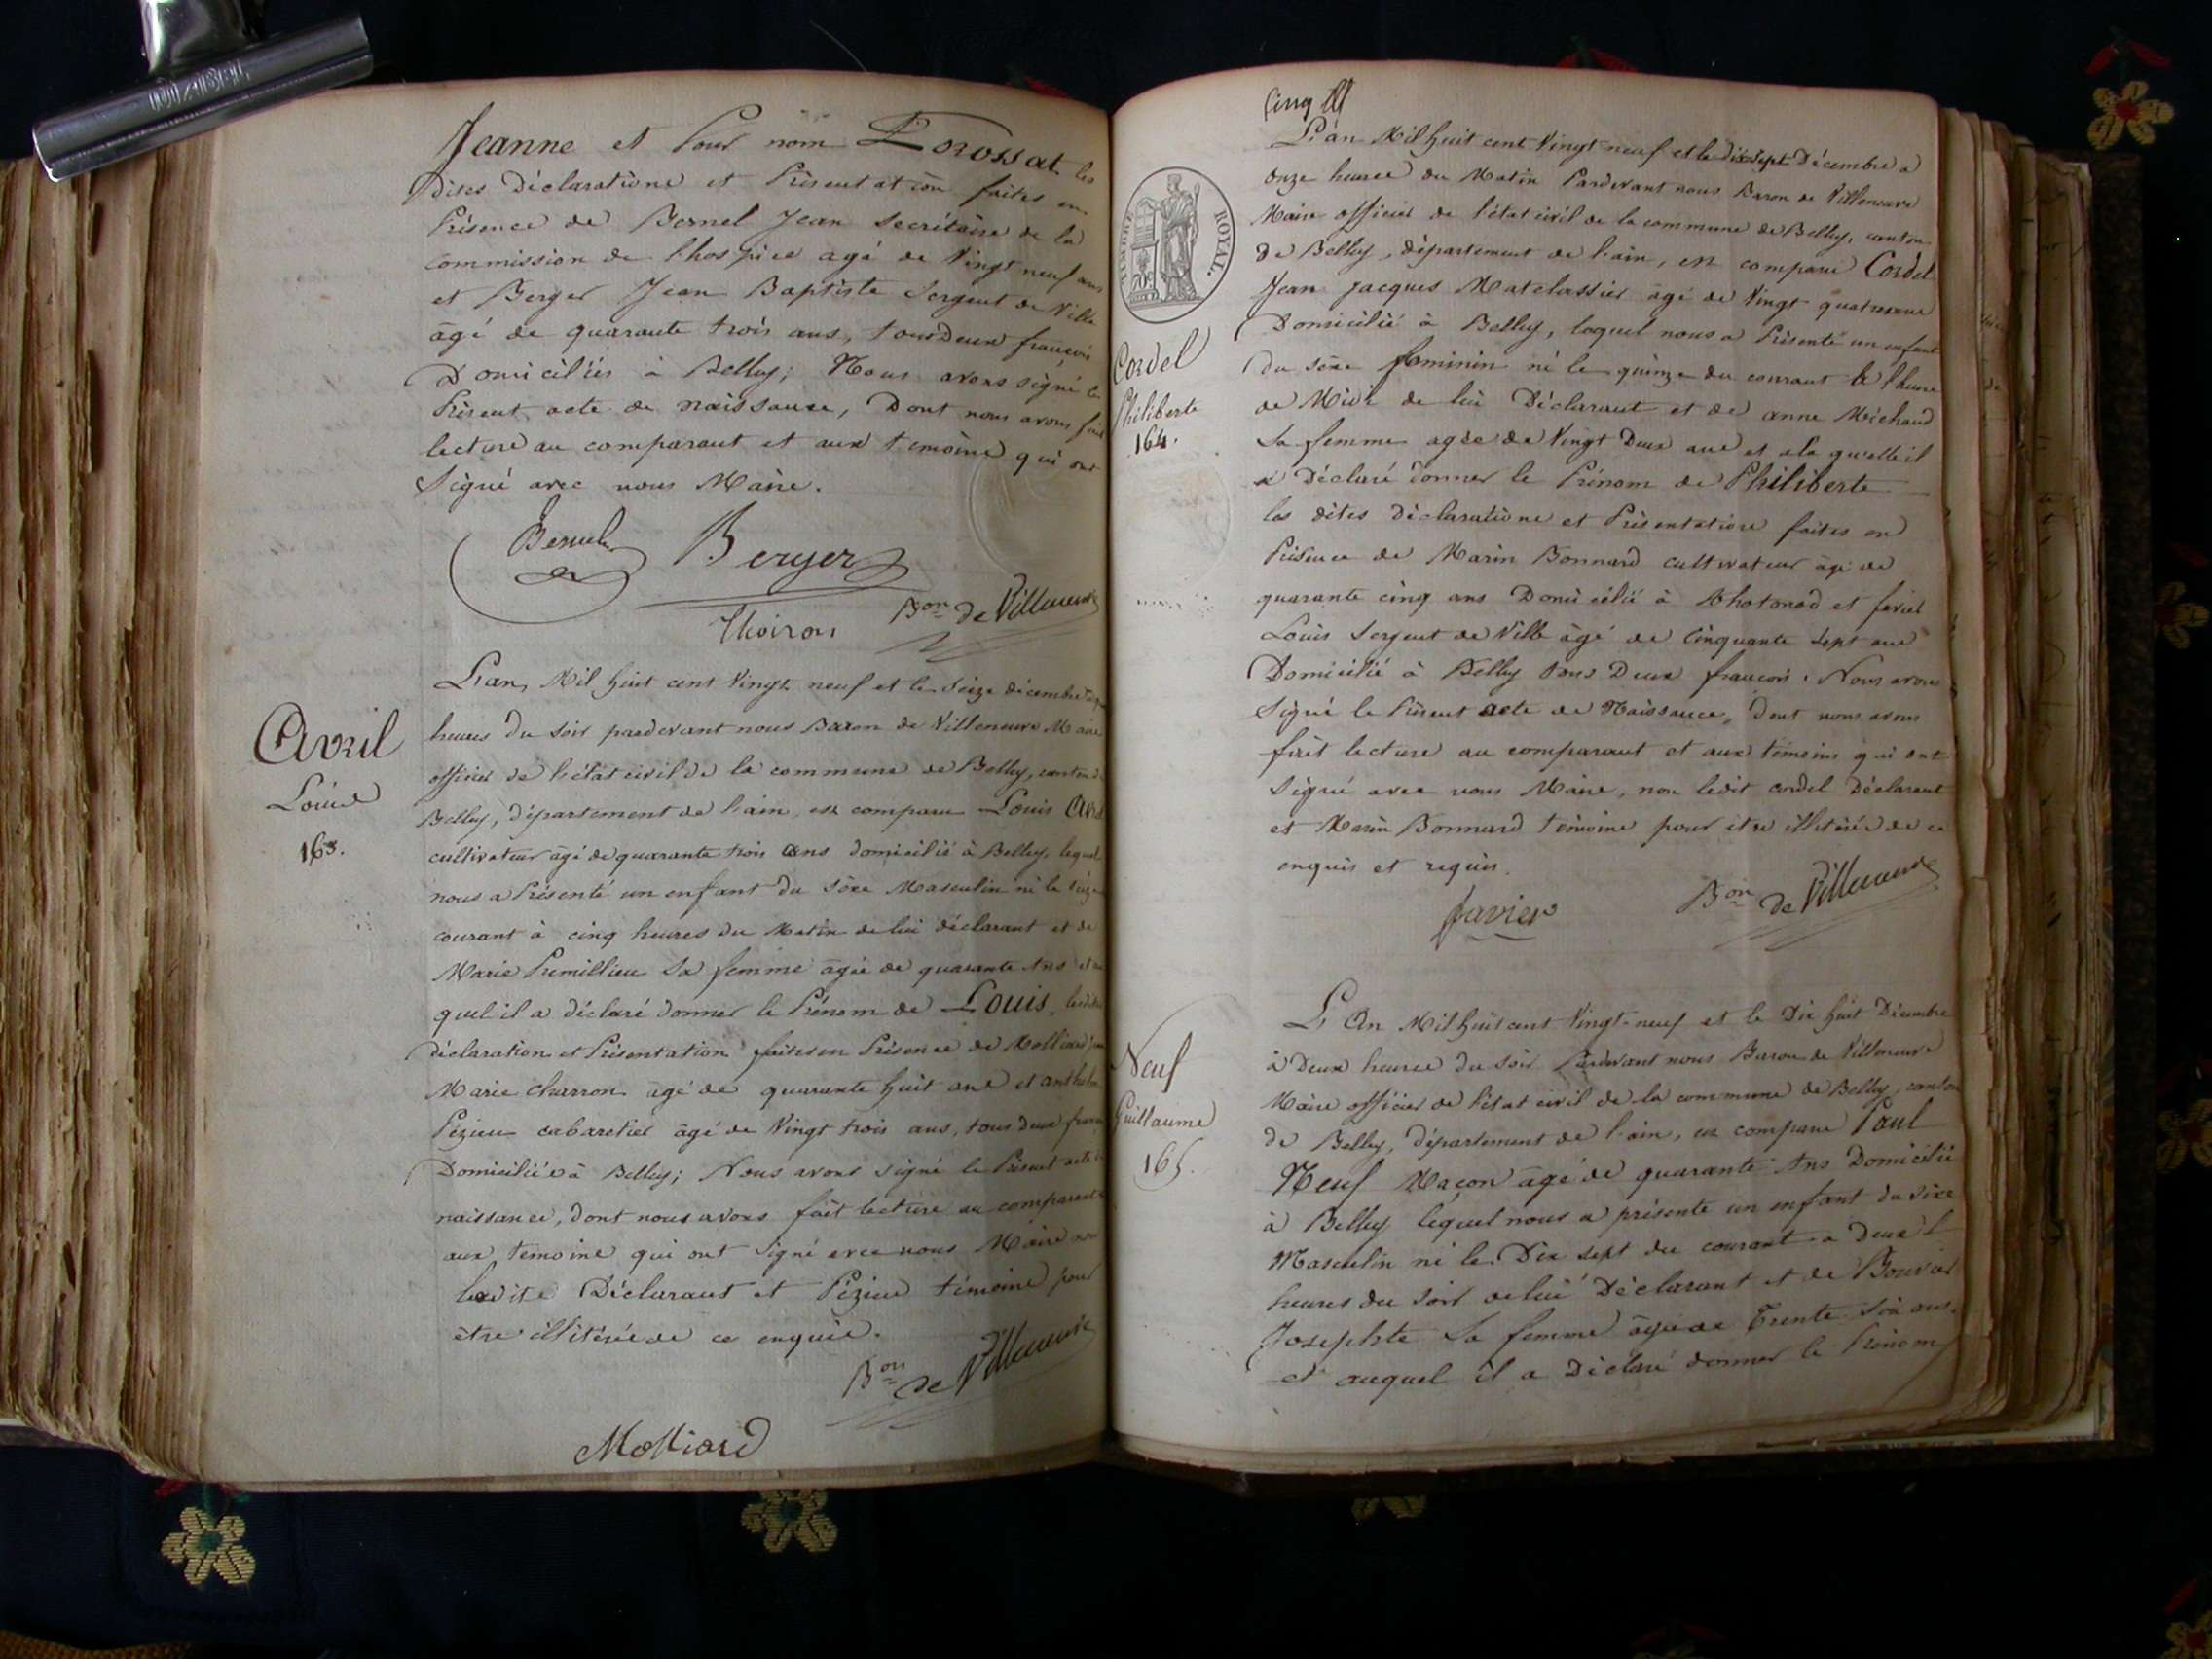 Jeanne et Pour nom Dorossat les
dites Déclarations et Présentation faites en
Présence de Bernel Jean Secrétaire de la
commission de l'hospice agé de Vingt neuf ans
et Berger Jean Baptiste Sergent de Ville
âgé de quarante trois ans, tous deux françois
Domiciliés à Belley; Nous avons signé le
Présent acte de naissance, Dont nous avons fait
lecture au comparant et aux temoins qui ont
Signé avec nous Maire.
Bernel Berger
Thoiron Bon de Villeneuve
Avril
Louis
163.
L'an Mil huit cent Vingt neuf et le Seize décembre
heures du soir pardevant nous Baron de Villeneuve Maire
officier de l'état civil de la commune de Belley, canton de
Belley, département de l'ain, est comparu Louis Avril
cultivateur âgé de quarante trois ans domicilié à Belley, lequel
nous a Présenté un enfant du Sexe Masculin né le Seize
courant à cinq heures du Matin de lui déclarant et de
Marie Premillieu Sa femme âgée de quarante Ans et
quel il a déclaré donner le Prénom de Louis, lesdites
déclaration et Présentation faites en Présence de Molliard
Marie charron agé de quarante huit ans et anthelme
Pezieu cabaretier âgé de Vingt trois ans, tous deux français
Domiciliés à Belley; Nous avons signé le Présent acte de
naissance, dont nous avons fait lecture au comparant
aux temoins qui ont signé avec nous Maire non
Déclarant et Pézieu témoins pour
être illitérés de ce enquis.
Bon de Villeneuve
Molliard
Cinq
TIMBRE ROYAL.
Cordel
Philiberte
164.
L'an Mil huit cent Vingt neuf et le dix Sept Décembre a
onze heures du Matin Pardevant nous Baron de Villeneuve
Maire officier de l'état civil de la commune de Belley, canton
de Belley, département de l'ain, est comparu Cordel
Jean jacques Matelassier âgé de Vingt quatre ans
Domicilié à Belley, lequel nous a Présenté un enfant
du sexe feminin né le quinze du courant à l'heure
de Midi de lui Déclarant et de anne Michaud
Sa femme agée de Vingt Deux ans et a la quelle il
a Déclaré donner le Prénom de Philiberte
les dites déclarations et Présentations faites en
Présence de Marin Bonnard cultivateur âgé de
quarante cinq ans Domicilié à Lhotonod et favier
Louis Sergent de Ville âgé de Cinquante Sept ans
Domicilié à Belley tous Deux françois; Nous avons
Signé le Présent acte de Naissance, dont nous avons
fait lecture au comparant et aux témoins qui ont
Signé avec nous Maire, non ledit cordel Déclarant
et Marin Bonnard témoins pour être illitérés de ce
enquis et requis.
favier Bon de Villeneuve
Neuf
Guillaume
165.
L'An Mil huit cent Vingt-neuf et le Dix huit Décembre
à Deux heures du soir Pardevant nous Baron de Villeneuve
Maire officier de l'état civil de la commune de Belley, canton
de Belley, département de l'ain, est comparu Paul
Neuf Maçon âgé de quarante Ans Domicilié
à Belley lequel nous a présenté un enfant du sixe
Masculin né le Dix sept du courant a deux
heures du soir de lui Déclarant et de Bouvier
Josephte Sa femme âgée de Trente Six ans
et auquel il a Déclaré donner le Prénom